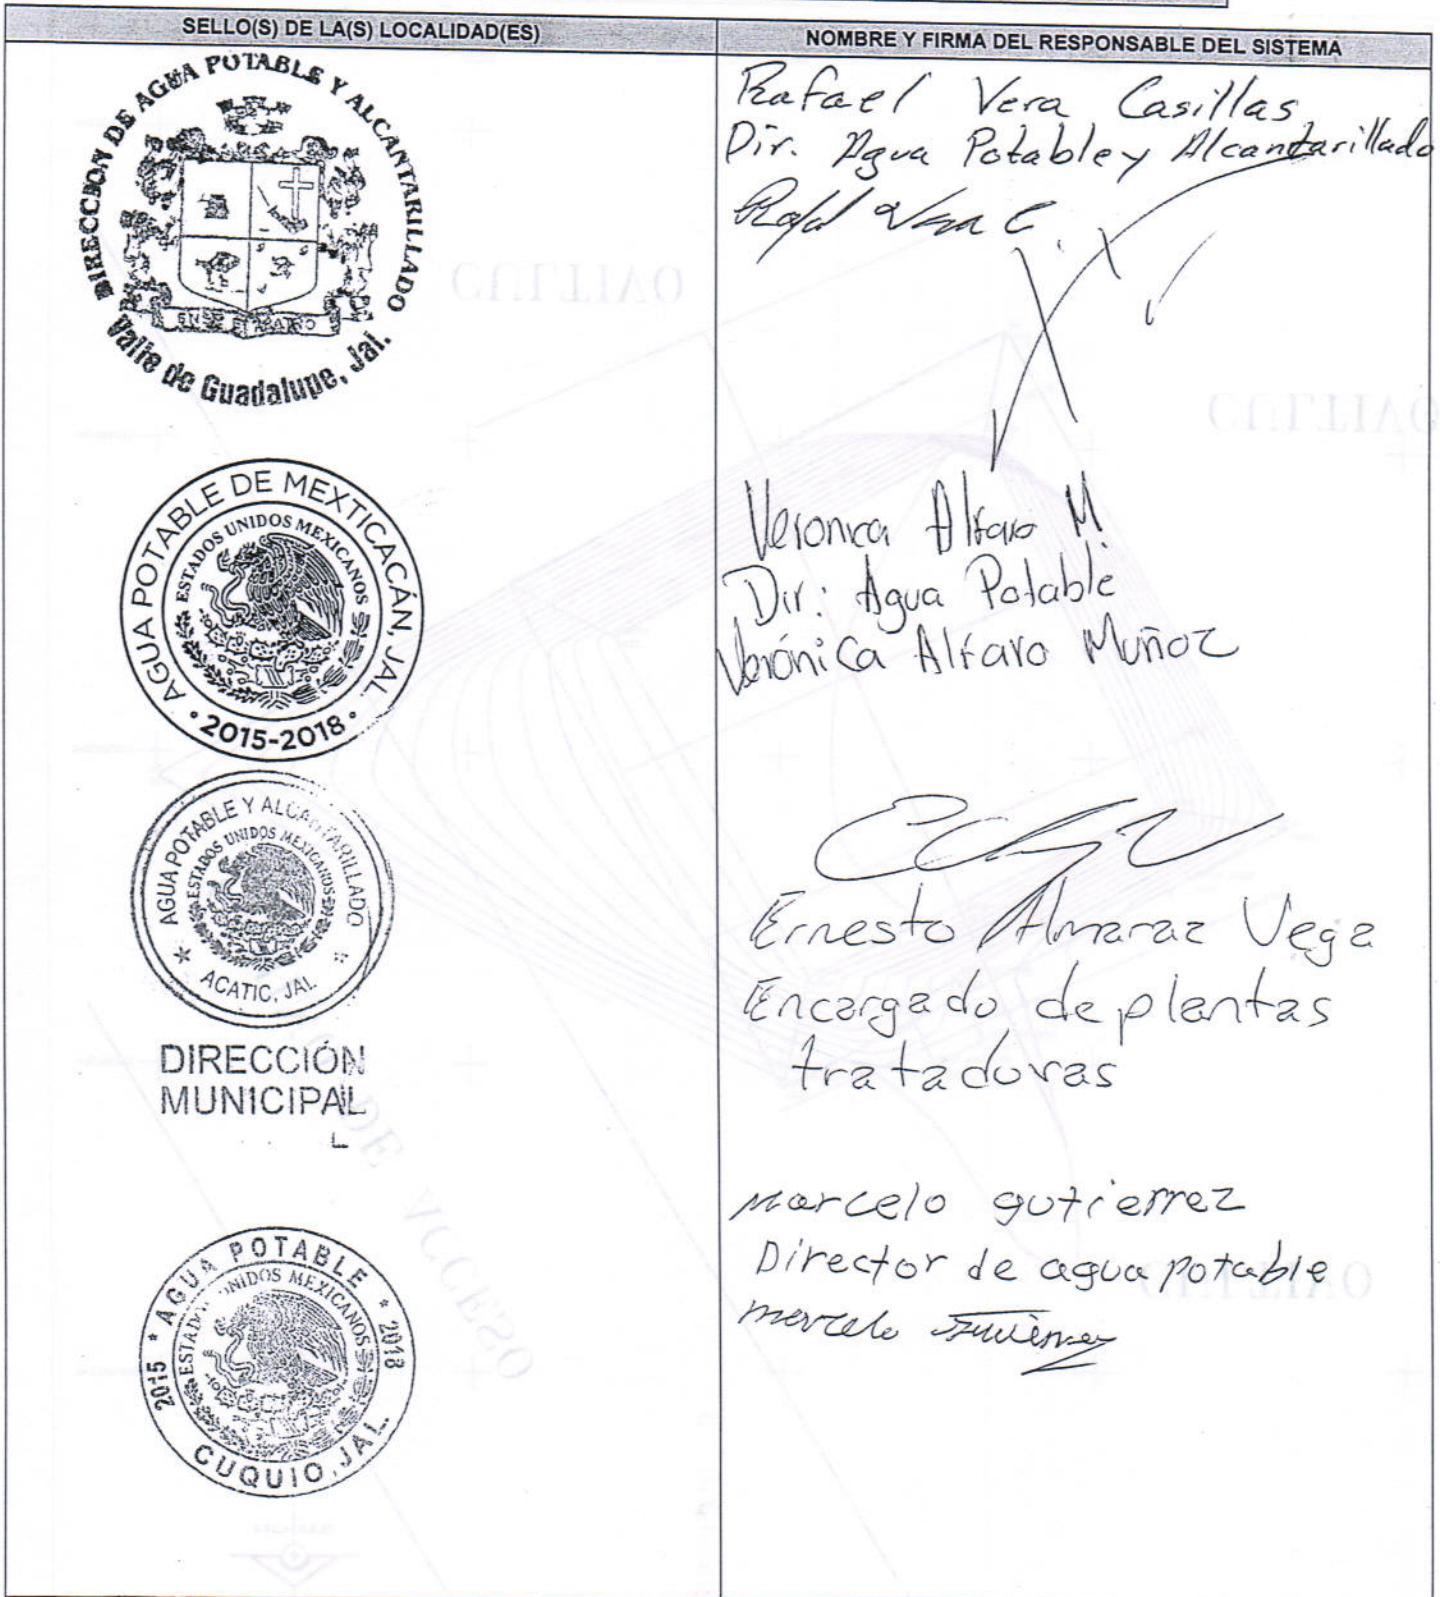 SELLO(S) DE LA(S) LOCALIDAD(ES)
NOMBRE Y FIRMA DEL RESPONSABLE DEL SISTEMA
DIRECCION DE AGUA POTABLE Y ALCANTARILLADO
Valle de Guadalupe, Jal.
Rafael Vera Casillas
Dir. Agua Potable y Alcantarillado
Rafael Vera C.
AGUA POTABLE DE MEXTICACÁN, JAL.
ESTADOS UNIDOS MEXICANOS
• 2015-2018 •
Veronica Alfaro M.
Dir: Agua Potable
Verónica Alfaro Muñoz
AGUA POTABLE Y ALCANTARILLADO
ESTADOS UNIDOS MEXICANOS
ACATIC, JAL.
DIRECCIÓN
MUNICIPAL
Ernesto Almaraz Vega
Encargado de plantas
tratadoras
2015 * AGUA POTABLE * 2018
ESTADOS UNIDOS MEXICANOS
CUQUIO, JAL.
Marcelo gutierrez
Director de agua potable
marcelo Gutierrez
CULTIVO
CULTIVO
CULTIVO
DE ACCESO